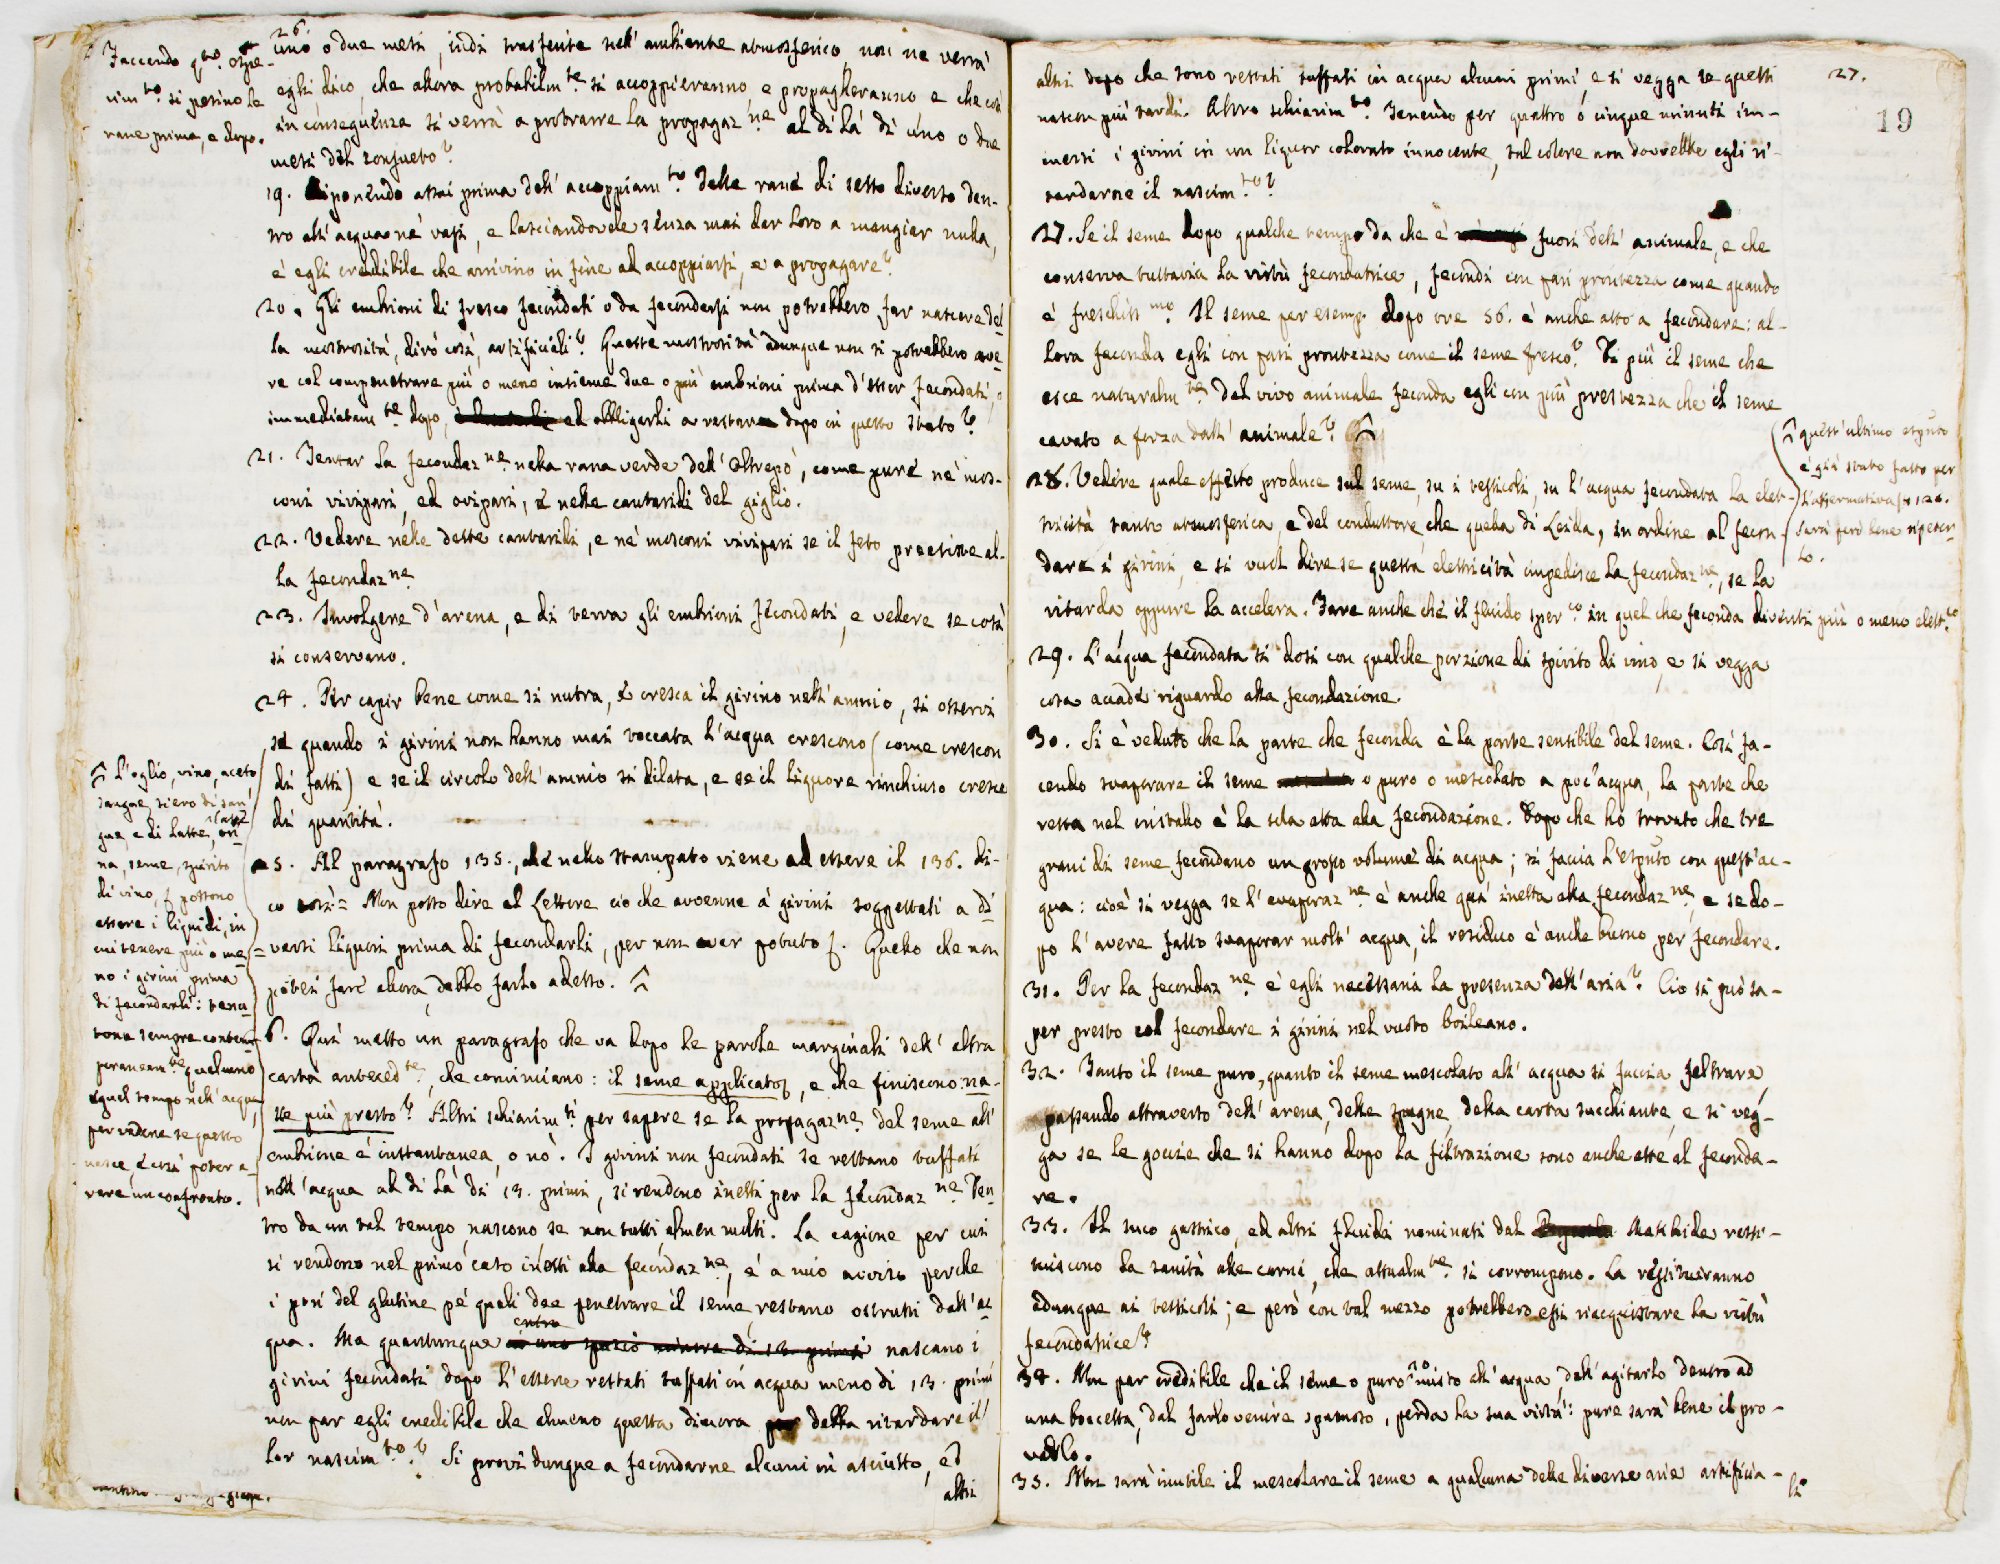 26
Facendo q.to espe-
rim.to si pesino le
rane prima, e dopo.
uno o due mesi, indi trasferite nell' ambiente atmosferico, non ne verrà
egli, dico, che allora probabilm.te si accoppieranno, e propagheranno e che così
in conseguenza si verrà a protrarre la propagaz.ne al di là di uno o due
mesi del consueto?
19. Riponendo assai prima dell' accoppiam.to delle rane di sesso diverso den-
tro all' acqua nè vasi, e lasciandovele senza mai dar loro a mangiar nulla,
è egli credibile che arrivino in fine ad accoppiarsi, e a propagare?
20. Gli embrioni di fresco fecondati o da fecondarsi non potrebbero far nascere del
la mostrosità, dirò così, artificiali? Queste mostrosità adunque non si potrebbero ave
re col compenetrare più o meno insieme due o più embrioni prima d'esser fecondati, o
immediatam.te dopo, ed obbligarli a restare dopo in questo stato?
21. Tentar la fecondaz.ne nella rana verde dell' Oltrepò, come pure nè mos-
coni vivipari, ed ovipari, e nelle cantaridi del giglio.
22. Vedere nelle dette cantaridi, e nè mosconi vivipari se il feto preesiste al-
la fecondaz.ne
23. Involgere d'arena, e di terra gli embrioni fecondati, e vedere se così
si conservano.
24. Per capir bene come si nutra, e cresca il girino nell' amnio, si osservi
se quando i girini non hanno mai toccata l'acqua crescono (come crescon
di fatti) e se il circolo dell' amnio si dilata, e se il liquore rinchiuso cresce
di quantità.
25. Al paragrafo 135., che nello stampato viene ad essere il 136. di-
co così = Non posso dire al Lettore ciò che avvenne à girini soggettati a di
versi liquori prima di fecondarli, per non aver potuto &. Quello che non
potei fare allora, debbo farlo adesso.
L'oglio, vino, aceto,
sangue, siero di san
gue, e di latte, latte, ori
na, seme, spirito
di vino, & possono
essere i liquidi, in
cui tenere più o me
no i girini prima
di fecondarli: tenu
tone sempre contem
poraneam.te qualcuno
a quel tempo nell' acqua
per vedere se questo
nasce, e così poter a-
vere un confronto.
6. Qui metto un paragrafo che va dopo le parole marginali dell' altra
carta anteced.te, che cominciano: il seme applicato &, e che finiscono: na-
sce più presto? Altri schiarim.ti per sapere se la propagaz.ne del seme all'
embrione è instantanea, o nò. I girini non fecondati se restano tuffati
nell' acqua al di là di 13. primi, si rendono inetti per la fecondaz.ne Den
tro da un tal tempo nascono se non tutti almen molti. La cagione per cui
si rendono nel primo caso inetti alla fecondaz.ne, è a mio avviso perche
i pori del glutine pè quali dee penetrare il seme, restano ostrutti dall' ac
qua. Ma quantunque entro a uno spazio minore di 13 primi nascano i
girini fecondati dopo l'essere restati tuffati in acqua meno di 13. primi
non par egli credibile che almeno questa dimora debba ritardare il
lor nascim.to? Si provi dunque a fecondarne alcuni in asciutto, ed
altri
27.
19
altri dopo che sono restati tuffati in acqua alcuni primi, e si vegga se questi
nascon più tardi. Altro schiarim.to Tenendo per quattro o cinque minuti im-
mersi i girini in un liquor colorato innocente, tal colore non dovrebbe egli ri-
tardarne il nascim.to?
27. Se il seme dopo qualche tempo da che è fuori dell' animale, e che
conserva tuttavia la virtù fecondatrice, fecondi con pari prontezza come quando
è freschiss.mo Il seme per esemp. dopo ore 56. è anche atto a fecondare: al-
lora feconda egli con pari prontezza come il seme fresco? Di più il seme che
esce naturalm.te dal vivo animale feconda egli con più prestezza che il seme
cavato a forza dall' animale?
quest' ultimo esputo
è già stato fatto per
l'affermativa 126.
Sarà però bene ripeter
lo.
28. Vedere quale effetto produce sul seme, su i testicoli, su l'acqua fecondata la elet-
tricità tanto atmosferica, e del conduttore, che quella di Leida, in ordine al fecon-
dare i girini, e si vuol dire se questa elettricità impedisce la fecondaz.ne, se la
ritarda oppure la accelera. Fare anche che il fluido sper.co in quel che feconda diventi più o meno elett.co
29. L'acqua fecondata si dosi con qualche porzione di spirito di vino, e si vegga
cosa accade riguardo alla fecondazione.
30. Si è veduto che la parte che feconda è la parte sensibile del seme. Così fa-
cendo svaporare il seme o puro o mescolato a poc'acqua, la parte che
resta nel cristallo è la sola atta alla fecondazione. Dopo che ho trovato che tre
grani di seme fecondano un grosso volume di acqua; si faccia l'esputo con quest' ac-
qua: cioè si vegga se l'evaporaz.ne è anche qui inetta alla fecondaz.ne, e se do-
po l'avere fatto svaporar molt' acqua, il residuo è anche buono per fecondare.
31. Per la fecondaz.ne è egli necessaria la presenza dell' aria? Ciò si può sa-
per presto col fecondare i girini nel vuoto boileano.
32. Tanto il seme puro, quanto il seme mescolato all' acqua si faccia feltrare,
passando attraverso dell' arena, delle spugne, della carta succhiante, e si veg-
ga se le goccie che si hanno dopo la filtrazione sono anche atte al feconda-
re.
33. Il suco gastrico, ed altri fluidi nominati dal Macbride resti-
tuiscono la sanità alle carni, che attualm.te si corrompono. La restituiranno
adunque ai testicoli; e però con tal mezzo potrebbero essi riacquistare la virtù
fecondatrice?
34. Non par credibile che il seme o puro, o misto all' acqua, dall' agitarlo dentro ad
una boccetta, dal farlo venire spumoso, perda la sua virtù: pure sarà bene il pro-
varlo.
35. Non sarà inutile il mescolare il seme a qualcuna delle diverse arie artificia-
li